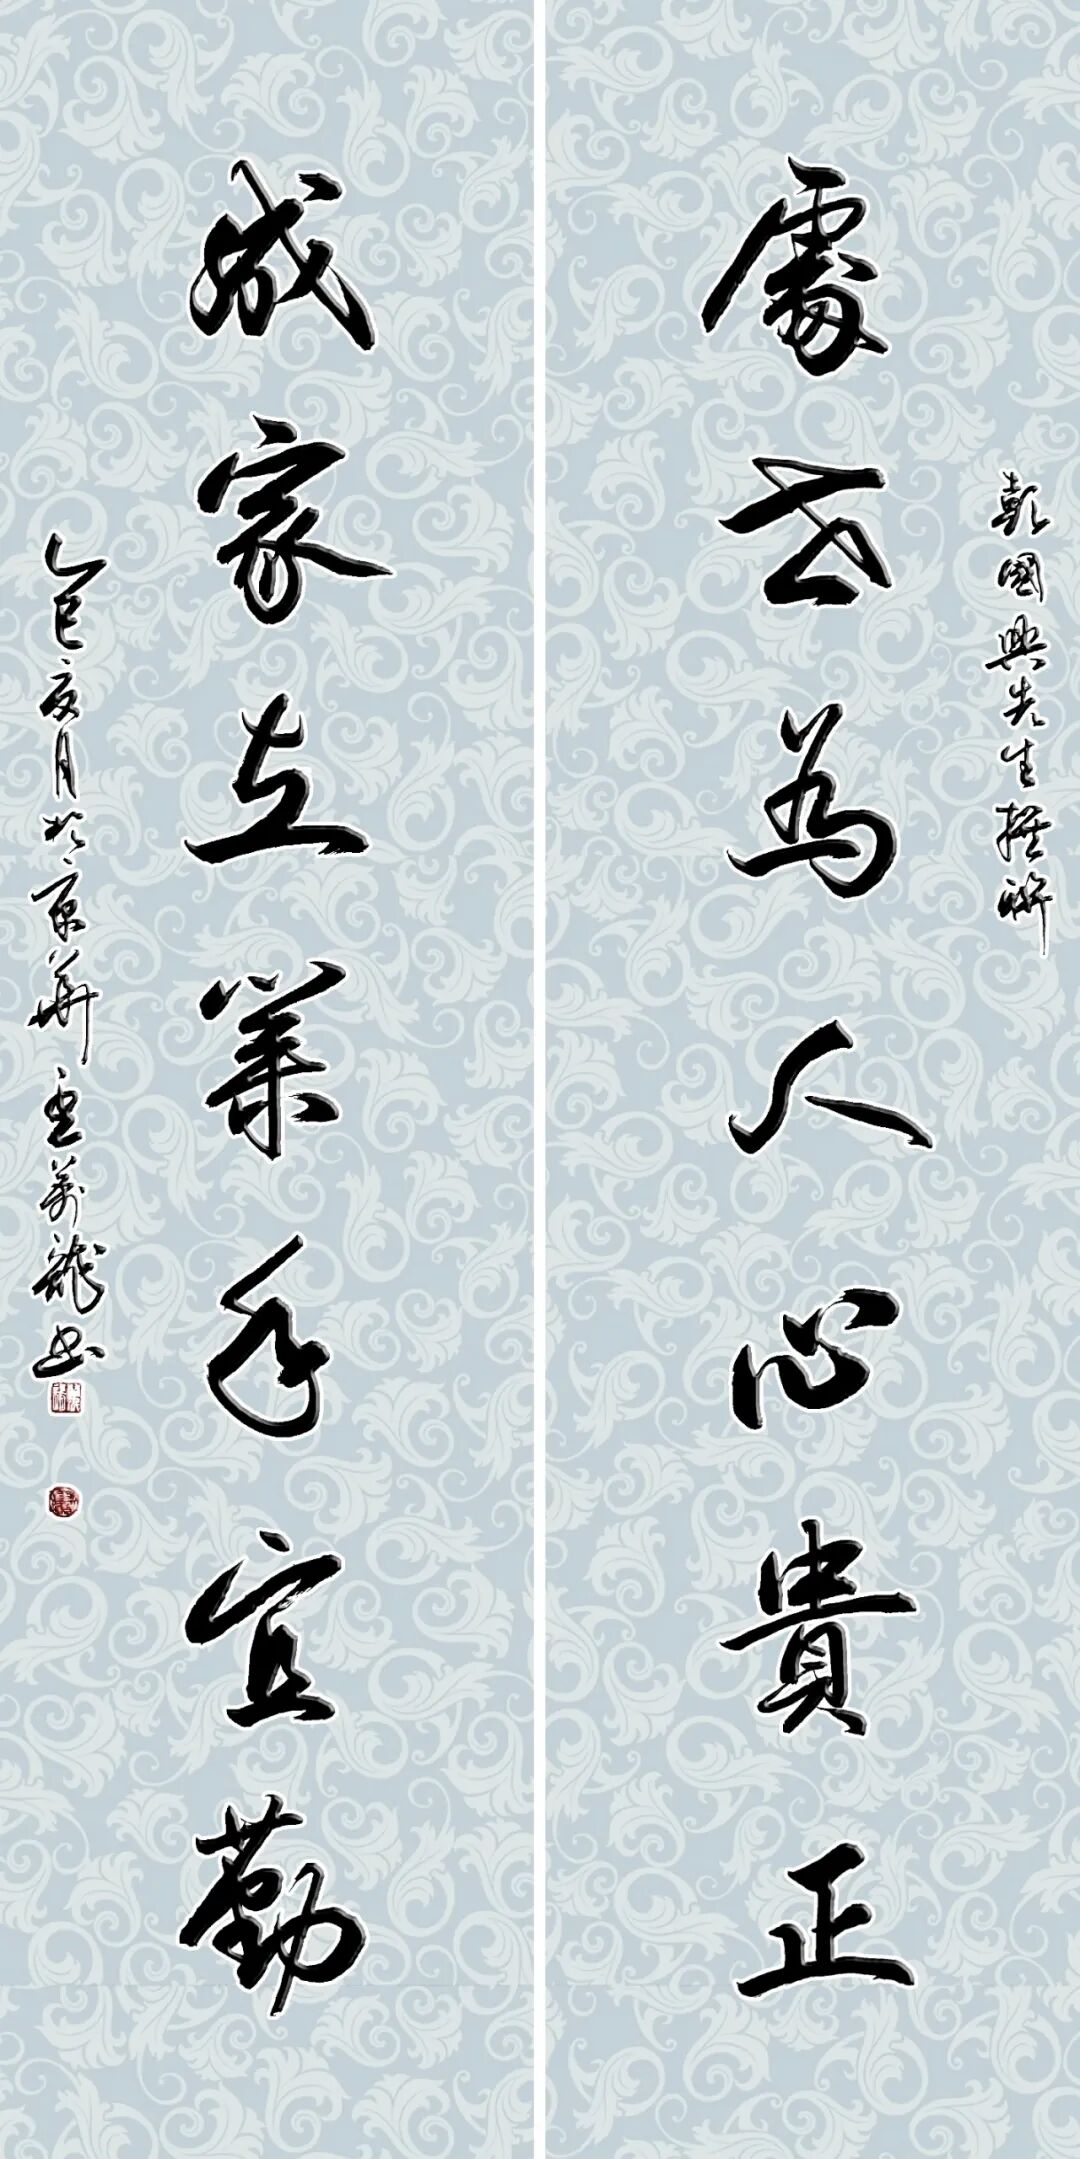 彭國興先生撰聯
處世為人心貴正
成家立業手宜勤
乙巳月於京華萬龍書